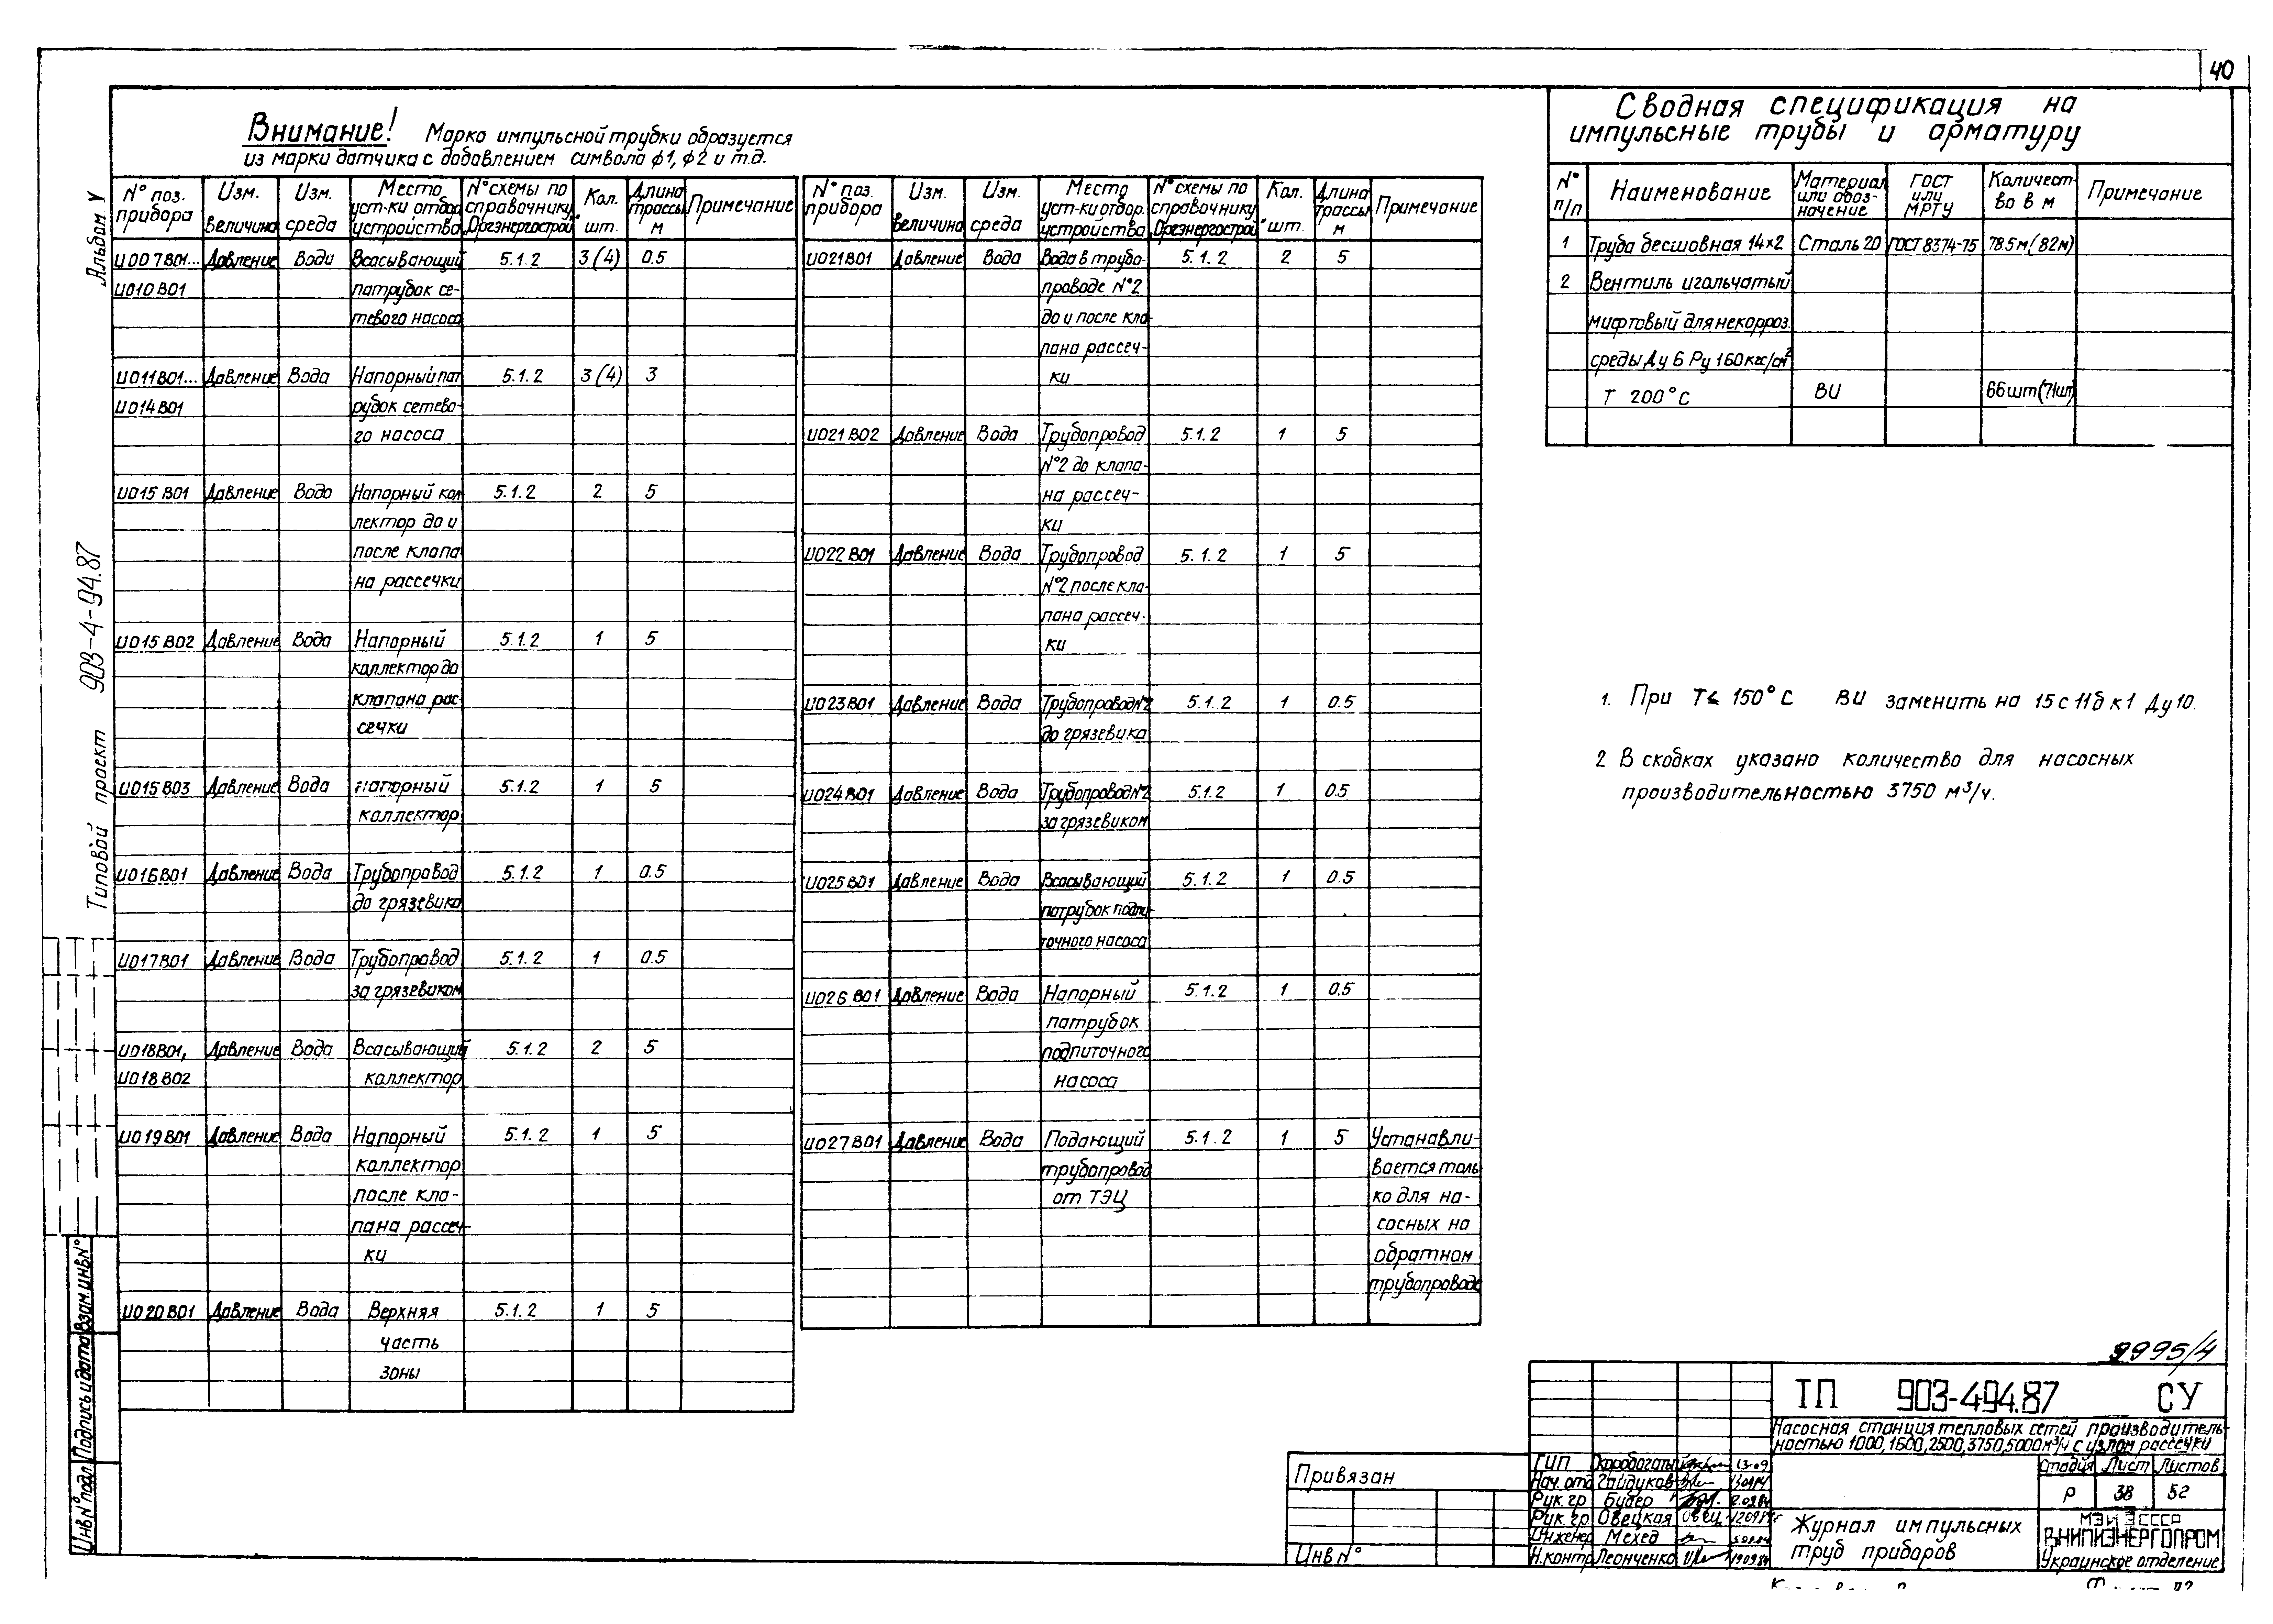 40
Альбом V
Типовой проект 903-4-94.87
Внимание! Марка импульсной трубки образуется
из марки датчика с добавлением символа ф1, ф2 и т.д.
N° поз. прибора | Изм. величина | Изм. среда | Место уст-ки отбор. устройства | N° схемы по справочнику "Оргэнергострой" | Кол. шт. | Длина трассы м | Примечание
U007B01... Давление Вода Всасывающий 5.1.2 3(4) 0.5
U010B01 патрубок се-
тевого насоса
U011B01... Давление Вода Напорный пат 5.1.2 3(4) 3
U014B01 рубок сетево-
го насоса
U015B01 Давление Вода Напорный кол 5.1.2 2 5
лектор до и
после клапа
на рассечки
U015B02 Давление Вода Напорный 5.1.2 1 5
каллектор до
клапана рас-
сечки
U015B03 Давление Вода Напорный 5.1.2 1 5
коллектор
U016B01 Давление Вода Трубопровод 5.1.2 1 0.5
до грязевика
U017B01 Давление Вода Трубопровод 5.1.2 1 0.5
за грязевиком
U018B01, Давление Вода Всасывающий 5.1.2 2 5
U018B02 коллектор
U019B01 Давление Вода Напорный 5.1.2 1 5
коллектор
после кла-
пана рассеч-
ки
U020B01 Давление Вода Верхняя 5.1.2 1 5
часть
зоны
N° поз. прибора | Изм. величина | Изм. среда | Место уст-ки отбор. устройства | N° схемы по справочнику "Оргэнергострой" | Кол. шт. | Длина трассы м | Примечание
U021B01 Давление Вода Вода в трубо- 5.1.2 2 5
проводе N°2
до и после кла-
пана рассеч-
ки
U021B02 Давление Вода Трубопровод 5.1.2 1 5
N°2 до клапа-
на рассеч-
ки
U022B01 Давление Вода Трубопровод 5.1.2 1 5
N°2 после кла-
пана рассеч-
ки
U023B01 Давление Вода Трубопровод N°2 5.1.2 1 0.5
до грязевика
U024B01 Давление Вода Трубопровод N°2 5.1.2 1 0.5
за грязевиком
U025B01 Давление Вода Всасывающий 5.1.2 1 0.5
патрубок подпи-
точного насоса
U026B01 Давление Вода Напорный 5.1.2 1 0.5
патрубок
подпиточного
насоса
U027B01 Давление Вода Подающий 5.1.2 1 5 Устанавли-
трубопровод вается толь
от ТЭЦ ко для на-
сосных на
обратном
трубопроводе
Сводная спецификация на
импульсные трубы и арматуру
N° п/п | Наименование | Материал или обоз-начение | ГОСТ или МРТУ | Количест-во в м | Примечание
1 Труба бесшовная 14×2 Сталь 20 ГОСТ 8374-75 78.5м(82м)
2 Вентиль игольчатый
муфтовый для некорроз.
среды Ду 6 Ру 160 кгс/см²
Т 200°С ВИ 66шт(71шт)
1. При Т≤ 150°С ВИ заменить на 15с11бк1 Ду10.
2 В скобках указано количество для насосных
производительностью 3750 м³/ч.
9995/4
ТП 903-494.87 СУ
Насосная станция тепловых сетей производитель-
ностью 1000,1600,2500,3750,5000м³/ч с узлом рассечки
Стадия Лист Листов
Р 38 52
Журнал импульсных
труб приборов
МЭиЭ СССР
ВНИПИЭНЕРГОПРОМ
Украинское отделение
ГИП Скоробогатый 13.09
Нач. отд Гайдуков
Рук. гр Бубер
Рук. гр Овецкая
Инженер Мехед
Н.контр Леонченко
Привязан
Инв N°
Взам. инв N°
Подпись и дата
Инв N° подл